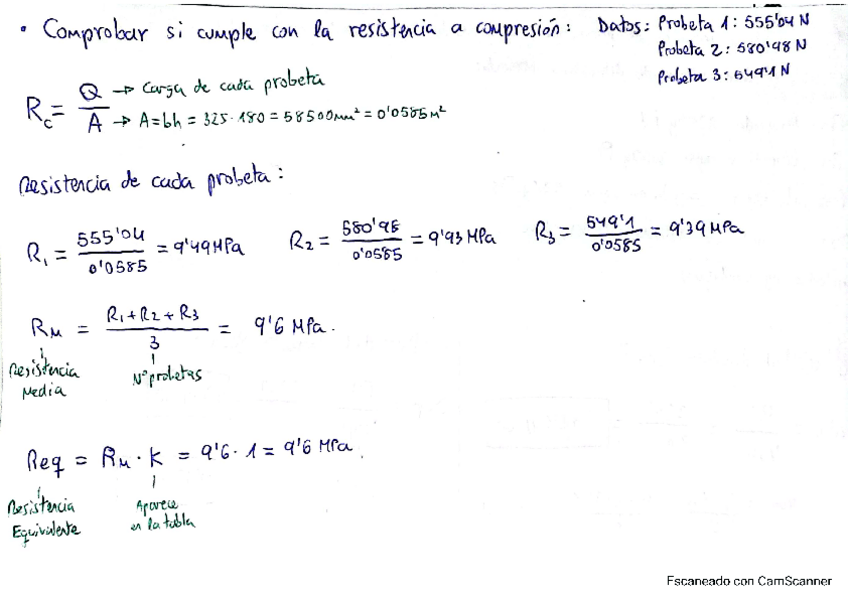 • Comprobar si cumple con la resistencia a compresión: Datos: Probeta 1: 555'04 N
Probeta 2: 580'98 N
Probeta 3: 549'1 N
Rc = Q / A → Carga de cada probeta
→ A = bh = 325·180 = 58500mm² = 0'0585m²
Resistencia de cada probeta:
R₁ = 555'04 / 0'0585 = 9'49MPa R₂ = 580'98 / 0'0585 = 9'93 MPa R₃ = 549'1 / 0'0585 = 9'39 MPa
RM = R₁ + R₂ + R₃ / 3 = 9'6 MPa.
Resistencia Media
Nº probetas
Req = RM · K = 9'6 · 1 = 9'6 MPa.
Resistencia Equivalente
Aparece en la tabla
Escaneado con CamScanner